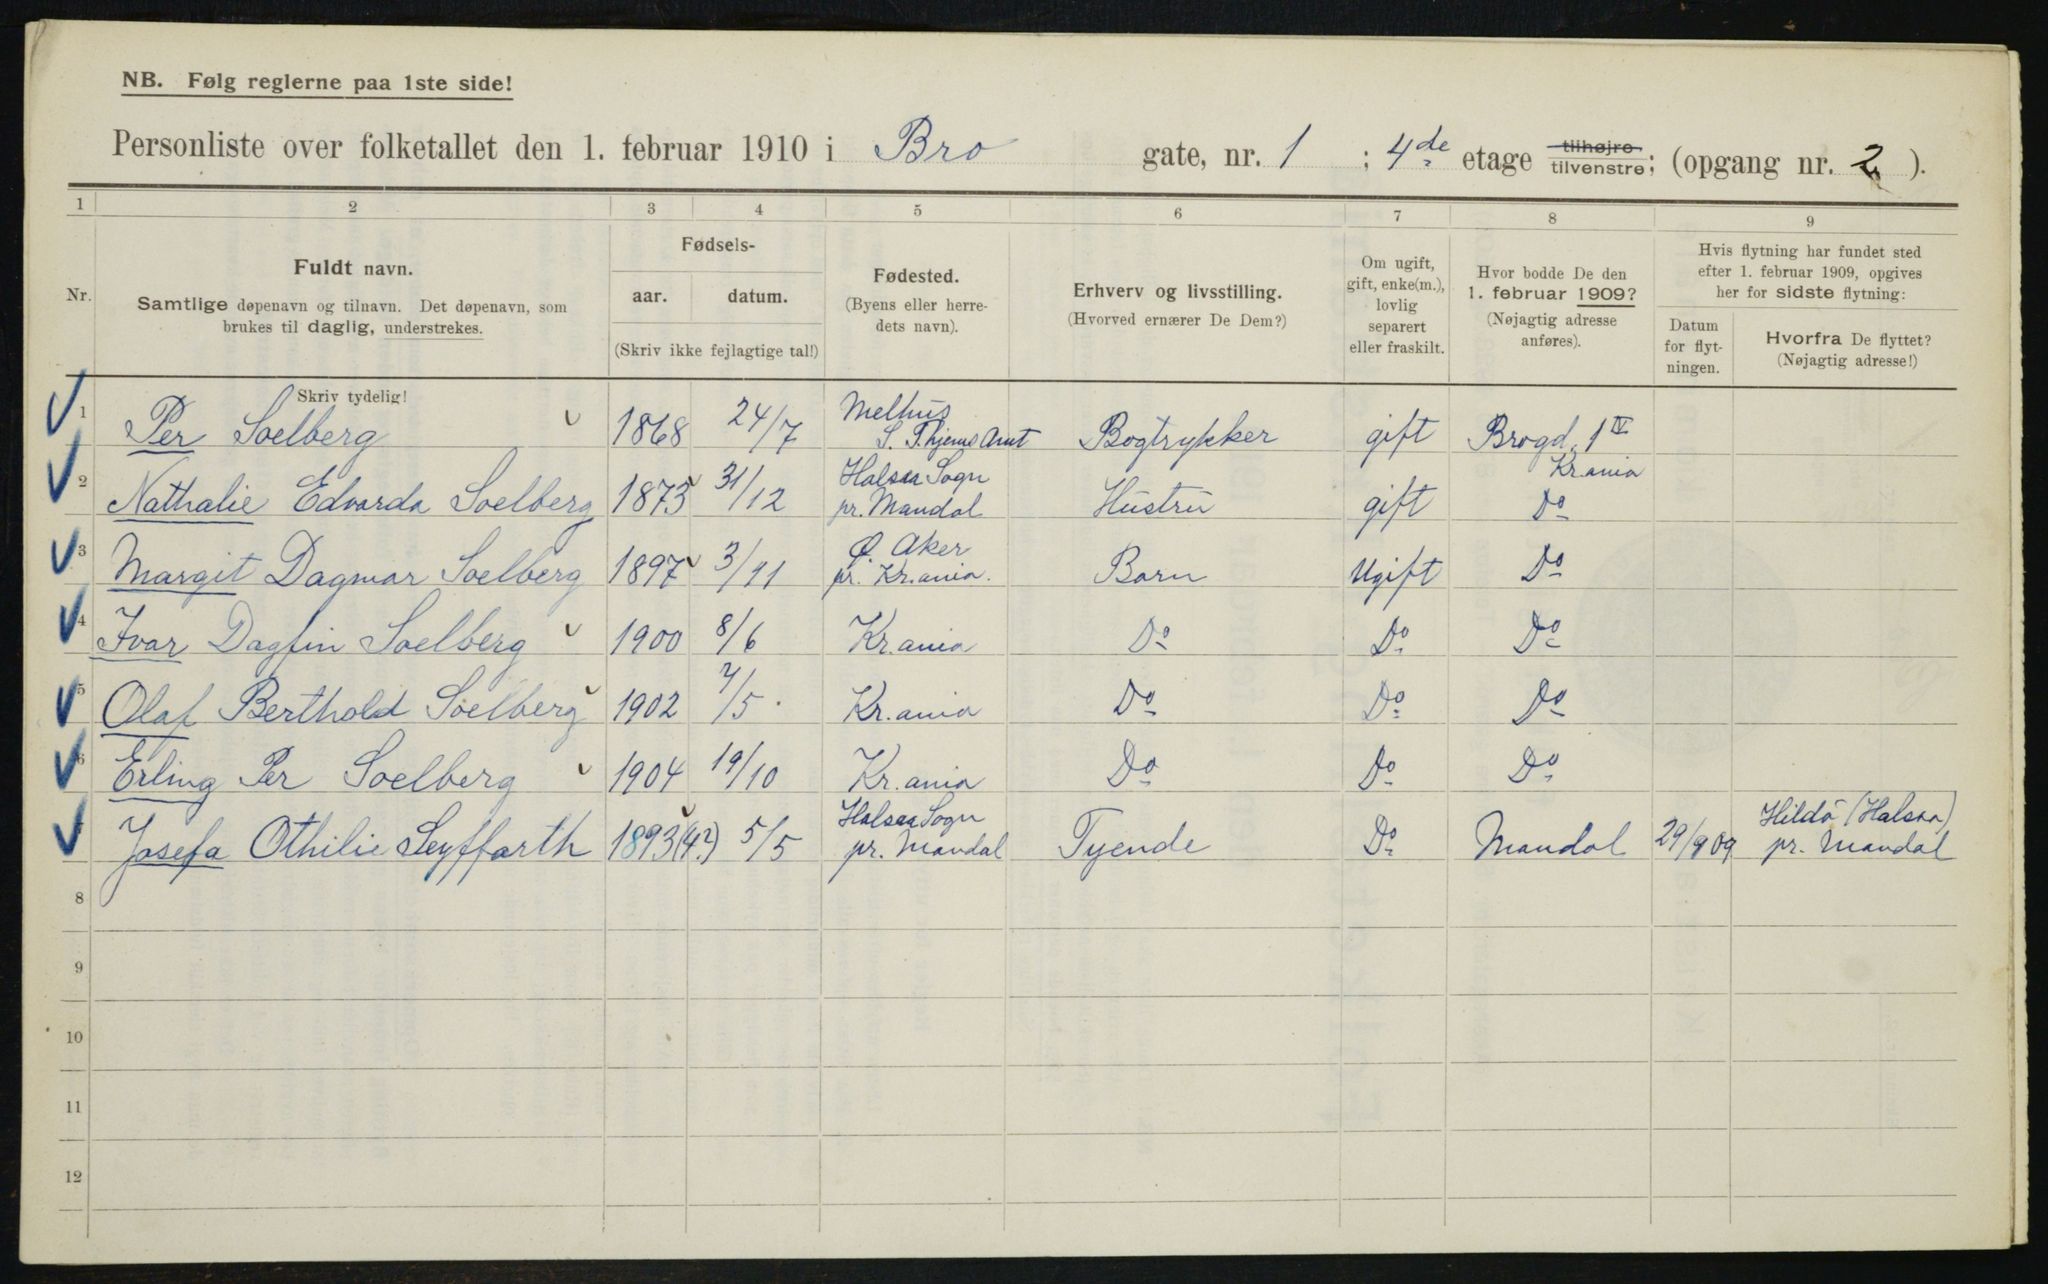 NB. Følg reglerne paa 1ste side!
Personliste over folketallet den 1. februar 1910 i Bro gate, nr. 1 ; 4de etage tilhøjre tilvenstre; (opgang nr. 2 ).
1 2 3 4 5 6 7 8 9
Nr.
Fuldt navn.
Samtlige døpenavn og tilnavn. Det døpenavn, som
brukes til daglig, understrekes.
Fødsels-
aar. datum.
(Skriv ikke fejlagtige tal!)
Fødested.
(Byens eller herre-
dets navn).
Erhverv og livsstilling.
(Hvorved ernærer De Dem?)
Om ugift,
gift, enke(m.),
lovlig
separert
eller fraskilt.
Hvor bodde De den
1. februar 1909?
(Nøjagtig adresse
anføres).
Hvis flytning har fundet sted
efter 1. februar 1909, opgives
her for sidste flytning:
Datum
for flyt-
ningen.
Hvorfra De flyttet?
(Nøjagtig adresse!)
Skriv tydelig!
1 Per Soelberg 1868 24/7 Melhus S. Thjems Amt Bogtrykker gift Brogd. 1 IV Kr.ania
2 Nathalie Edvarda Soelberg 1875 31/12 Halsaa Sogn pr. Mandal Hustru gift Do
3 Margit Dagmar Soelberg 1897 3/11 Ø. Aker pr. Kr.ania. Barn Ugift Do
4 Ivar Dagfin Soelberg 1900 8/6 Kr.ania Do Do Do
5 Olaf Berthold Soelberg 1902 7/5 Kr.ania Do Do Do
6 Erling Per Soelberg 1904 19/10 Kr.ania Do Do Do
Josefa Othilie Seyffarth 1893 (4?) 5/5 Halsaa Sogn pr. Mandal Tyende Do Mandal 29/9 09 Hildø (Halsaa) pr. Mandal
8
9
10
11
12